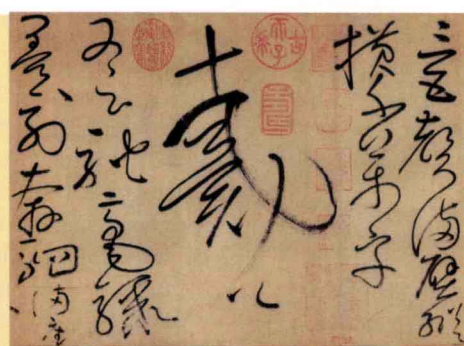 三五聲滿壁縱
橫千萬字
戴公
又云馳毫驟
墨列奔駟滿座